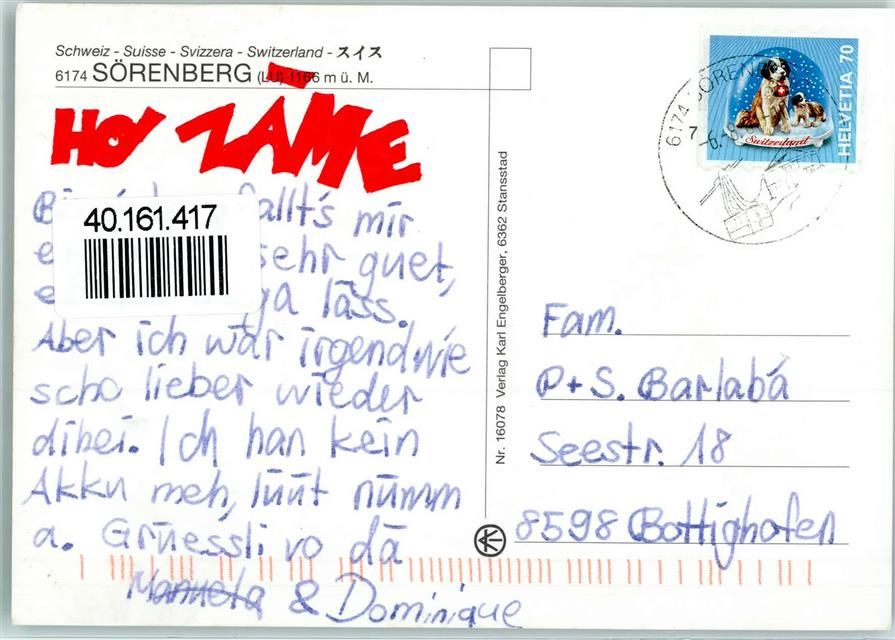 Schweiz - Suisse - Svizzera - Switzerland - スイス
6174 SÖRENBERG (LU) 1166 m ü. M.
HOI ZÄME
fallt's mir
sehr guet,
läss.
Aber ich wär irgendwie
scho lieber wieder
dihei. Ich han kein
Akku meh, lüüt nümm
a. Grüessli vo dä
Manuela & Dominique
40.161.417
Nr. 16078 Verlag Karl Engelberger, 6362 Stansstad
6174 SÖRENBERG
HELVETIA 70
Switzerland
Fam.
P+S. Barlabá
Seestr. 18
8598 Bottighofen